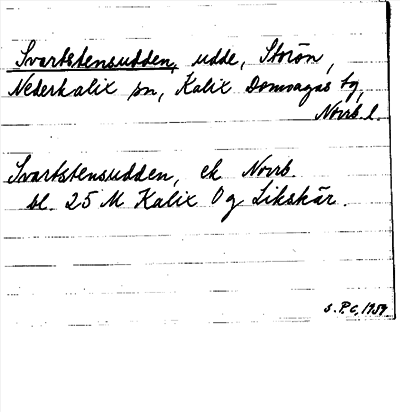 Svartstensudden, udde, Storön,
Nederkalix sn, Kalix Domsagas tg,
Norrb. l.
Svartstensudden, ek Norrb.
bl. 25 M Kalix Og Likskär.
S. P. C. 1959